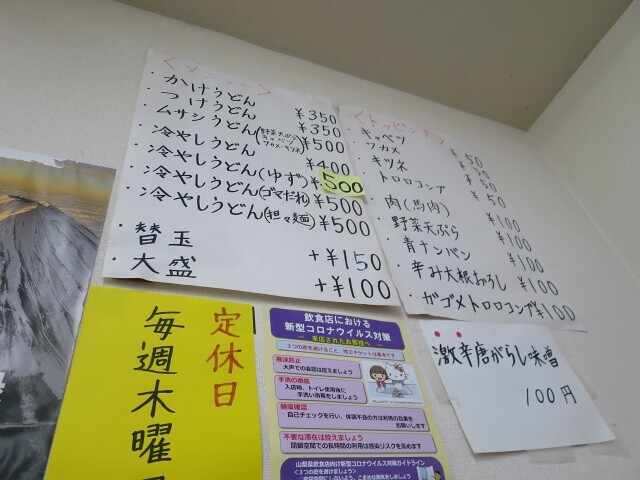 ・かけうどん ¥350
・つけうどん ¥350
・ムサシうどん(野菜天ぷら キャベツ ワカメ キツネ) ¥500
・冷やしうどん ¥400
・冷やしうどん(ゆず) ¥500
・冷やしうどん(ゴマだれ) ¥500
・冷やしうどん(担々麺) ¥500
・替玉 +¥150
・大盛 +¥100
<トッピング>
・キャベツ ¥50
・ワカメ ¥50
・キツネ ¥50
・トロロコンブ ¥50
・肉(馬肉) ¥100
・野菜天ぷら ¥100
・青ナンバン ¥100
・辛み大根おろし ¥100
・ガゴメトロロコンブ ¥100
激辛唐がらし味噌
100円
定休日
毎週木曜
飲食店における
新型コロナウイルス対策
～ 来店されたお客様へ ～
飛沫防止
大声での会話は控えましょう
手洗の徹底
入店時、トイレ使用後に
手洗い消毒をしましょう
健康確認
自己チェックを行い、体調不良の方は利用の自粛を
お願いします
不要な滞在は控えましょう
閉鎖空間での長時間の利用は感染リスクを高めます
山梨県飲食店向け新型コロナウイルス対策ガイドライン